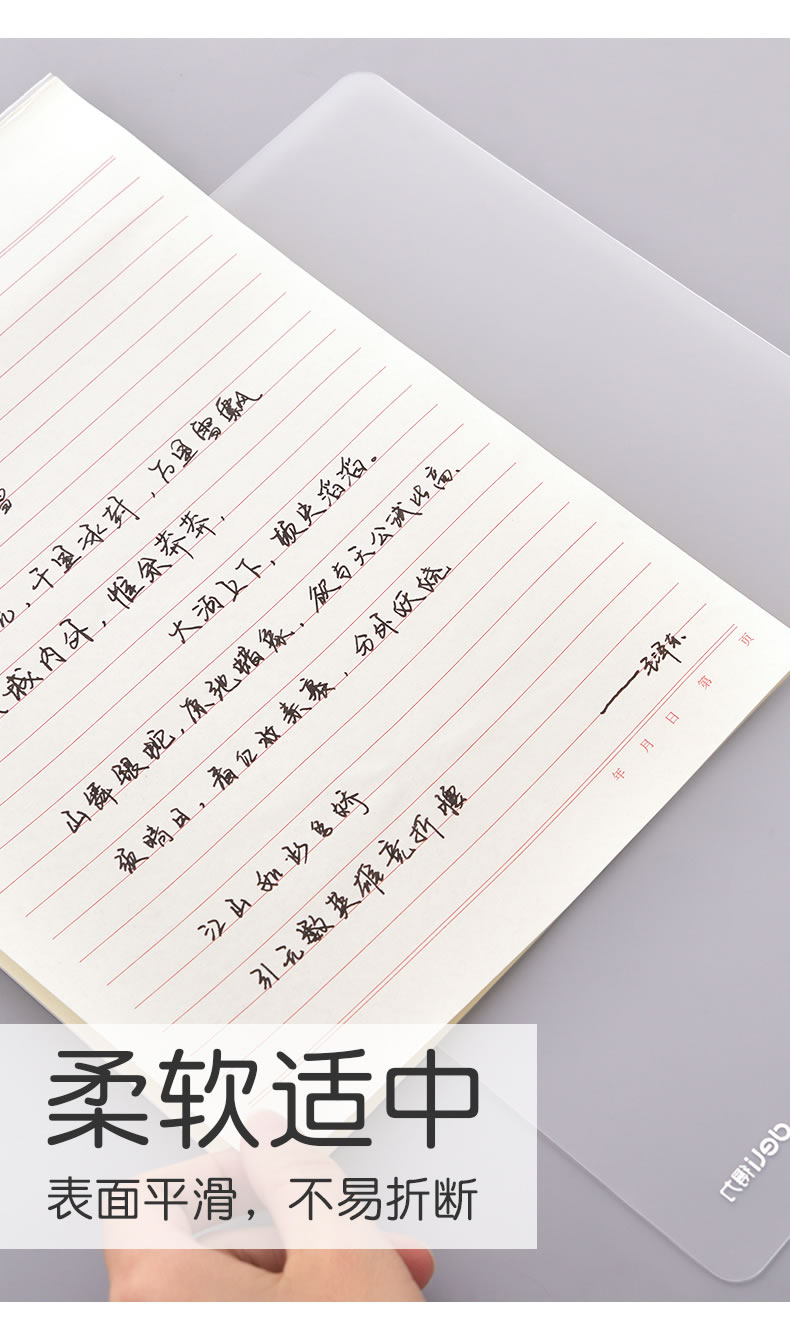 ，千里冰封，万里雪飘
城内外，惟余莽莽，
大河上下，顿失滔滔。
山舞银蛇，原驰蜡象，欲与天公试比高、
须晴日，看红妆素裹，分外妖娆
江山如此多娇
引无数英雄竞折腰
——毛泽东
年 月 日 第 页
deli得力
柔软适中
表面平滑，不易折断